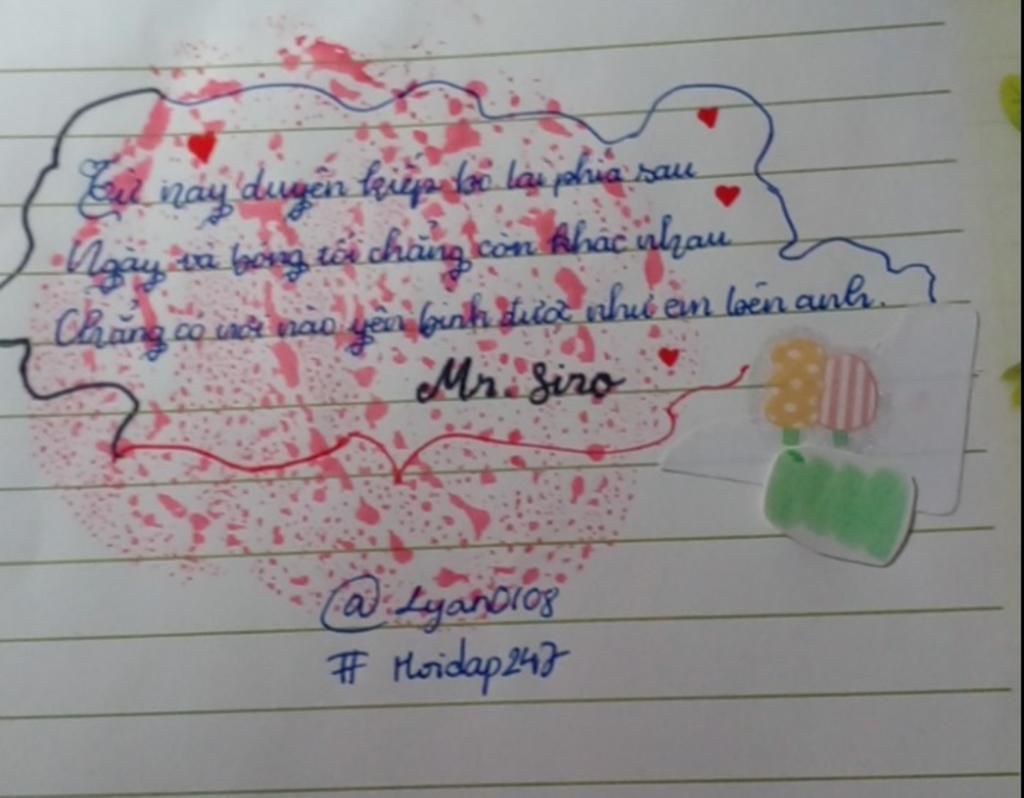 Từ nay duyên kiếp bỏ lại phía sau
Ngày và bóng tối chẳng còn khác nhau
Chẳng có nơi nào yên bình được như em bên anh.
Mr. Siro
@ Lyan0108
# Hoidap247